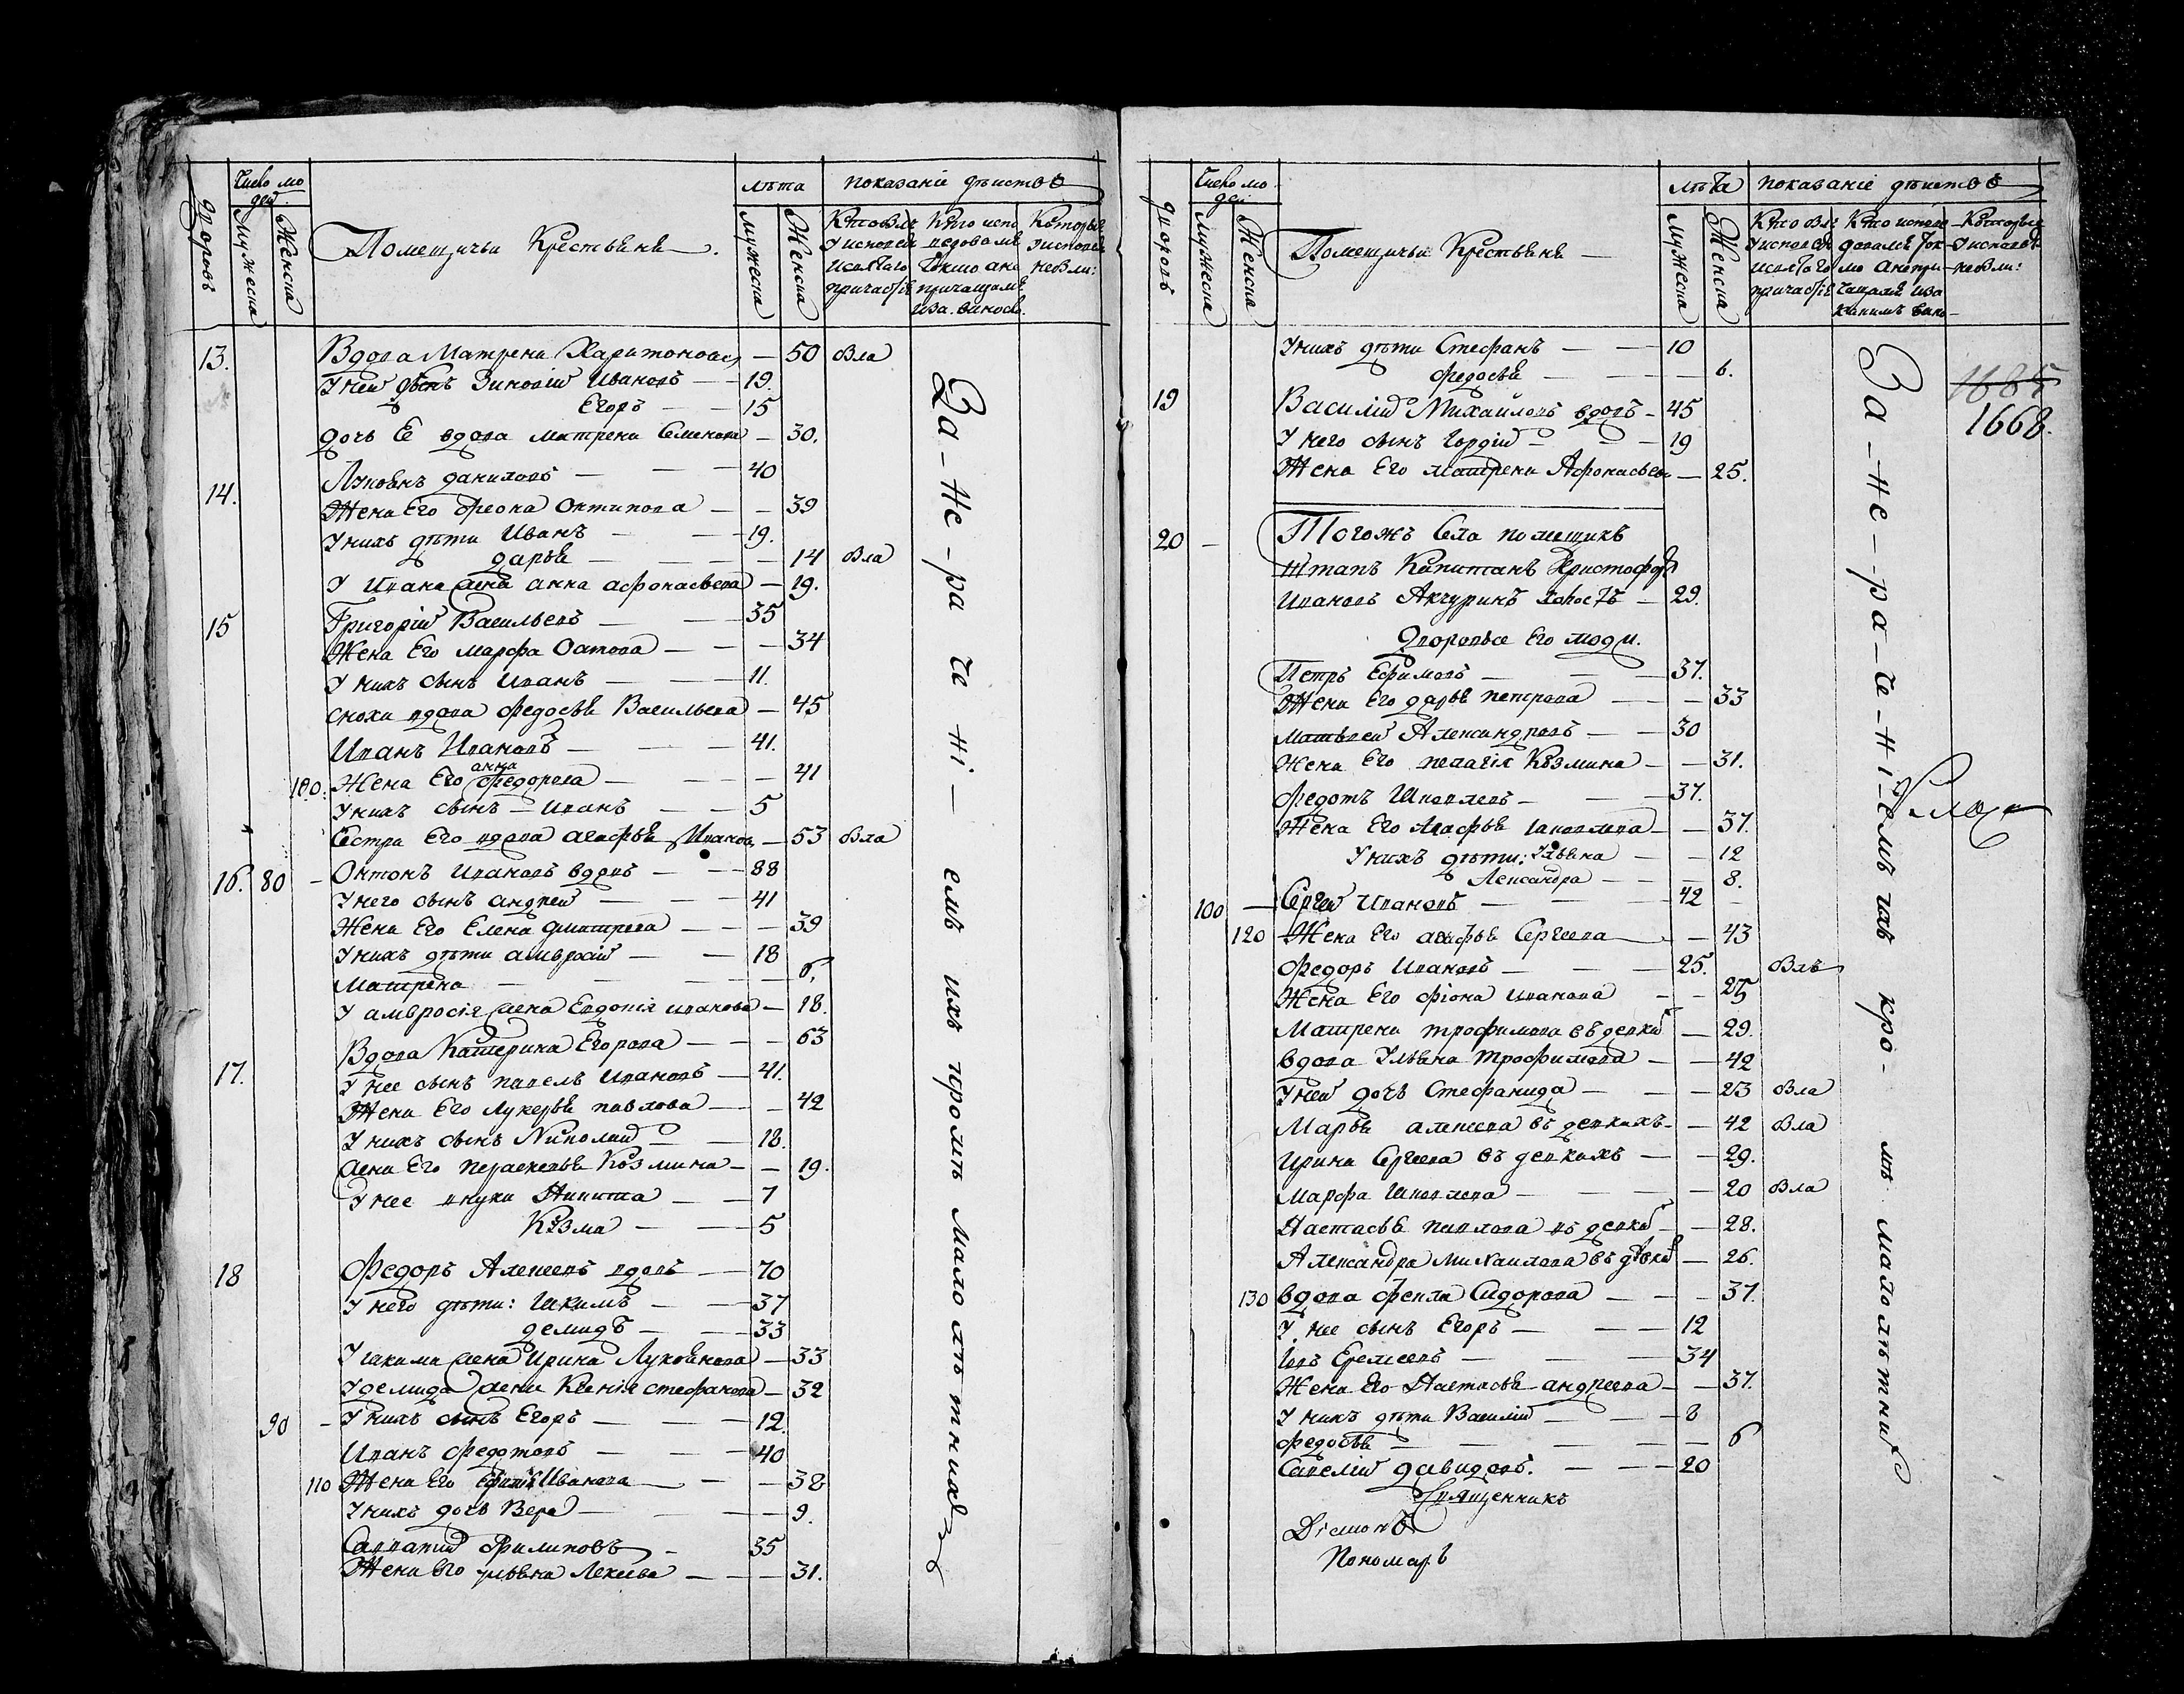 дворовъ
Число лю
деи
Мужеска
Женска
Помещичьи Крестьяне
лѣта
Мужеска
Женска
показаніе дѣиствъ
Кто былъ
у исповеди
и святаго
причастія
Кто испо
ведовалъ
токмо а не
причащалъ
Которые
у исповеди
не были:
13. Вдова Матрена Харитонова — 50 Была
У неи сынъ Зиновіи Ивановъ — 19.
Егоръ — 15
дочь Ее вдова матрена Семенова — 30.
14. Лукоянъ даниловъ — 40
Жена Его Октипова — 39
У нихъ дѣти Иванъ — 19.
дарья — 14 Была
У Ивана жена анна афонасьева — 19.
15 Григоріи Васильевъ — 35
Жена Его марфа — 34
У нихъ сынъ Иванъ — 11.
сноха вдова федосья Васильева — 45
Иванъ Ивановъ — 41.
100. Жена Его анна федорова — 41
У нихъ сынъ — Иванъ — 5
Сестра Его вдова агафья Иванова — 53 Была
16. 80 — Онтонъ Ивановъ вдовъ — 88
У него сынъ андреи — 41
Жена Его Елена дмитрева — 39
У нихъ дѣти амвросіи — 18
Матрена — 6,
У амвросія жена Евдокія иванова — 18.
17. Вдова Катерина Егорова — 63
У нее сынъ павелъ Ивановъ — 41.
Жена Его Лукерья павлова — 42
У нихъ сынъ Николаи — 18.
жена Его перасковья Козмина — 19.
У нее внуки Никита — 7
Козма — 5
18 Федоръ Алексеевъ вдовъ — 70
У него дѣти: Iякимъ — 37
демидъ — 33
У Iякима жена Ирина Лукоянова — 33
У демида жена Ксенія стефанова — 32
90 — У нихъ сынъ Егоръ — 12.
Иванъ федотовъ — 40
110 Жена Его Иванова — 38
У нихъ дочь Вера — 9.
филиповъ — 35
Жена Его ульяна Лексева — 31.
За-не-ра че ні — емъ ихъ кромѣ малолѣтнихъ
дворовъ
Число лю
деи
Мужеска
Женска
Помещичьи Крестьяне —
лѣта
Мужеска
Женска
показаніе дѣиствъ
Кто былъ
у исповеди
и святаго
причастія
Кто испове
довалъ ток
мо а непри
чащалъ и за
какимъ вино
Которые
у исповѣ
не были:
У нихъ дѣти Стефанъ — 10
федосья — 6.
19 Василіи Михаиловъ вдовъ — 45
У него сынъ Гордіи — 19
Жена Его матрена Афонасьева — 25.
20 — Тогожъ Села помещикъ
Штапъ Капитанъ Христофоръ
Ивановъ Акчуринъ холостъ — 29.
Дворовые Его люди.
Петръ Ефимовъ — 37.
Жена Его дарья петрова — 33
матвеи Александровъ — 30
Жена Его пелагія Козмина — 31.
федотъ Iяковлевъ — 37.
Жена Его Агафья iяковлева — 37.
У нихъ дѣти: Ульяна — 12
Лександра — 8.
100 — Сергеи Ивановъ — 42
120 Жена Его агафья Сергеева — 43
федоръ Ивановъ — 25. Былъ
Жена Его фіона иванова — 25
Матрена трофимова въ девкахъ — 29.
вдова Ульяна Трофимова — 42
У неи дочь Стефанида — 23 Была
Марья алексева въ девкахъ — 42 Была
Ирина Сергеева въ девкахъ — 29.
Марфа Iяковлева — 20 Была
Настасья павлова въ девкахъ — 28.
Александра Михаилова въ дѣвкахъ — 26.
130 вдова фекла Сидорова — 37.
У нее сынъ Егоръ — 12
Iовъ Еремеевъ — 34
Жена Его Настасья андреева — 37.
У нихъ дѣти Василіи — 8
федосья — 6
Савеліи давидовъ. — 20
Священникъ
Діаконъ
Пономарь
За-не-ра-че-н-і-емъ ихъ кро-мѣ малолѣтнихъ
1685
1668.